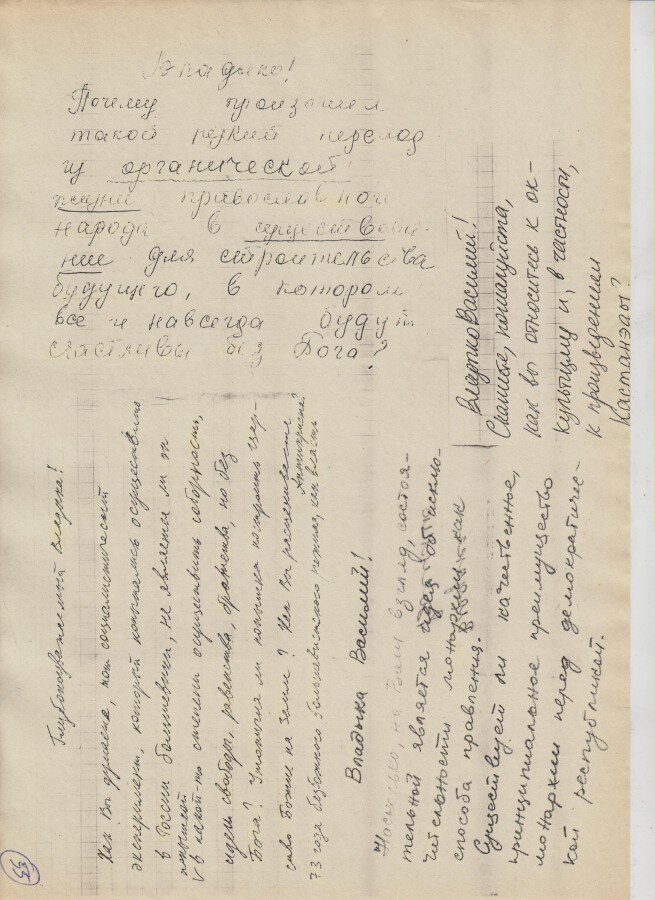 Владыко!
Почему произошел
такой резкий переход
из органической
жизни православного
народа в
ние для строительства
будущего, в котором
все и навсегда будут
счастливы без Бога?
Владыко Василий!
Скажите, пожалуйста,
как вы относитесь к ок-
культизму и, в частности,
к произведениям
Кастанэды?
Глубокоуважаемый Владыка!
Как Вы думаете, тот социалистический
эксперимент, который попытались осуществить
в России большевики, не является ли он
попыткой
V в какой-то степени осуществить соборность,
идеи свободы, равенства, братства, но без
Бога? Утопична ли попытка построить Цар-
ство Божие на земли? Как Вы расцениваете
Антихриста?
73 года безбожного большевистского режима, как власть
Владыка Василий!
Насколько, на Ваш взгляд, состоя-
тельной является идея об исклю-
чительности монархии как
способа правления.
Существует ли качественное,
принципиальное преимущество
монархии перед демократичес-
кой республикой.
53